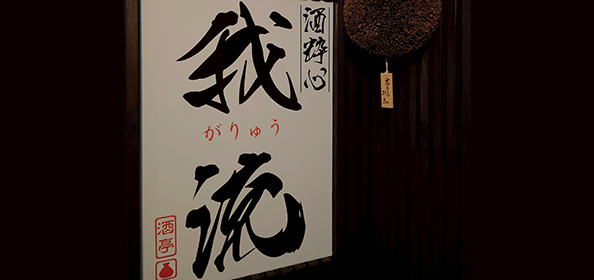 酒粋心
我流
がりゅう
酒亭